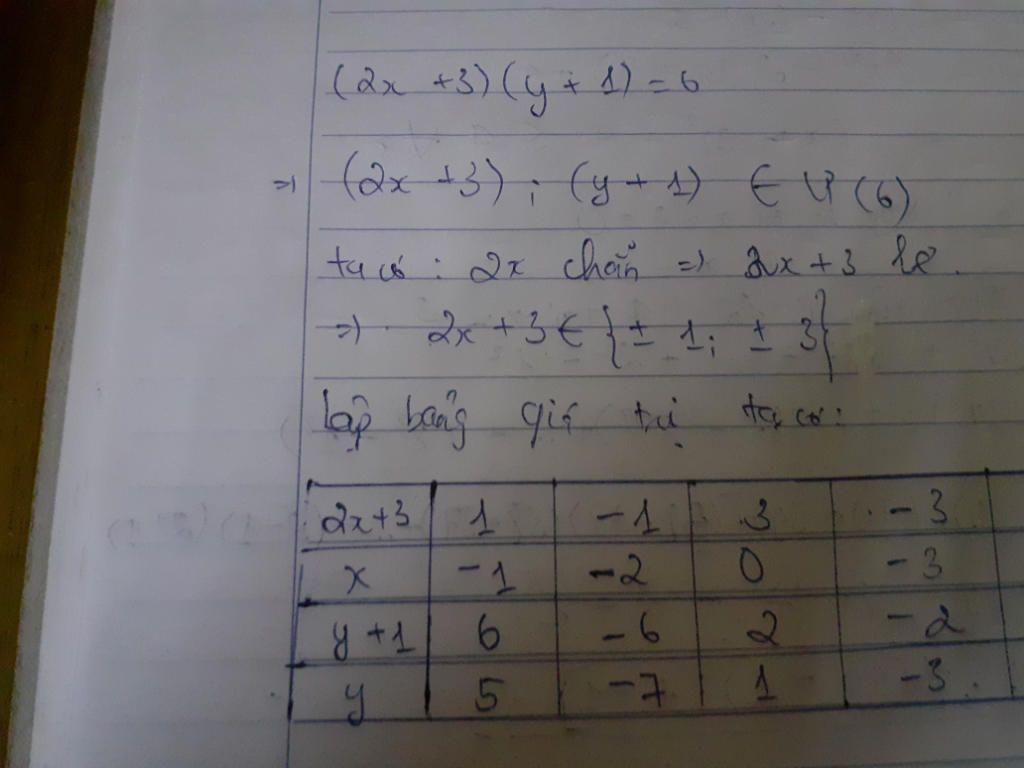 (2x +3) (y + 1) = 6
=> (2x +3) ; (y + 1) ∈ Ư (6)
ta có : 2x chẵn => 2x + 3 lẻ .
=> 2x + 3 ∈ {± 1; ± 3}
lập bảng giá trị ta có :
2x+3 1 -1 3 -3
x -1 -2 0 -3
y +1 6 -6 2 -2
y 5 -7 1 -3